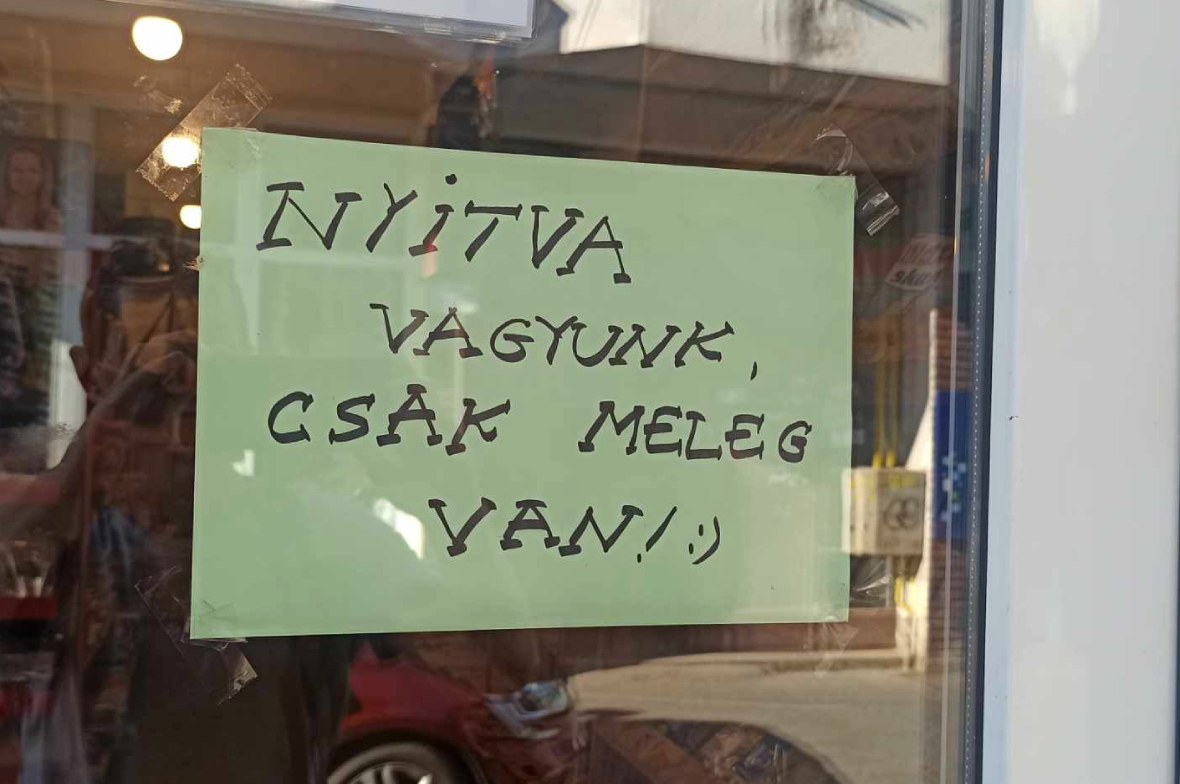 NYİTVA
VAGYUNK,
CSAK MELEG
VAN! :)